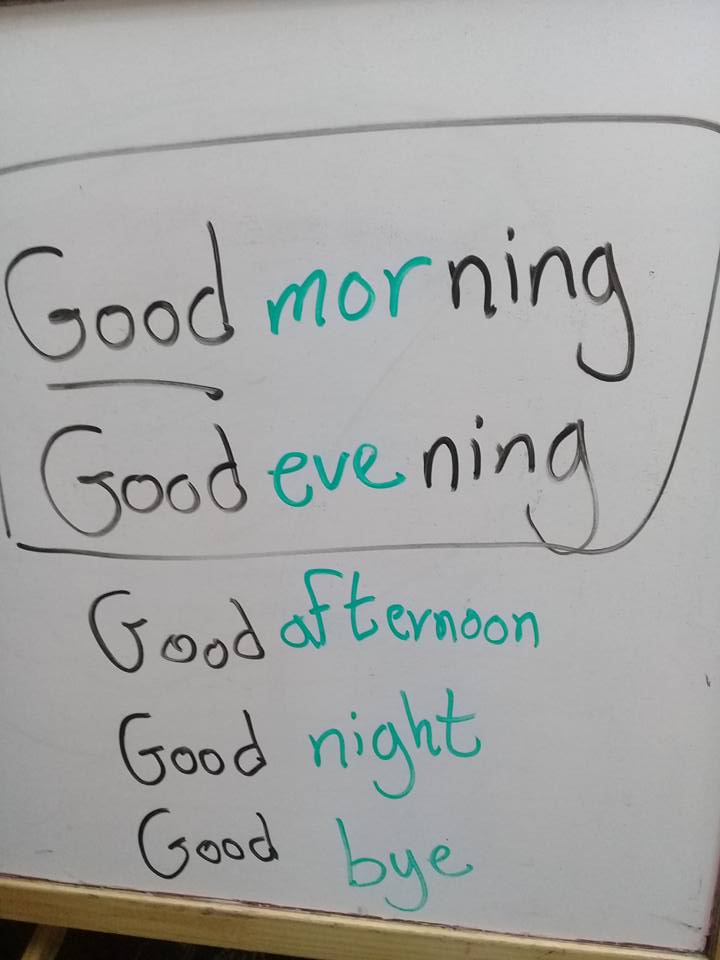 Good morning
Good evening
Good afternoon
Good night
Good bye